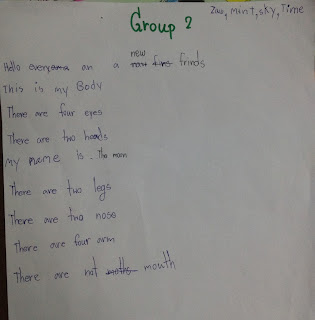 Zaw, mint, sky, Time
Group 2
Hello every an a new frinds
This is my Body
There are four eyes
There are two heads
my name is . Tho mann
There are two legs
There are two nose
There are four arm
There are not mouth